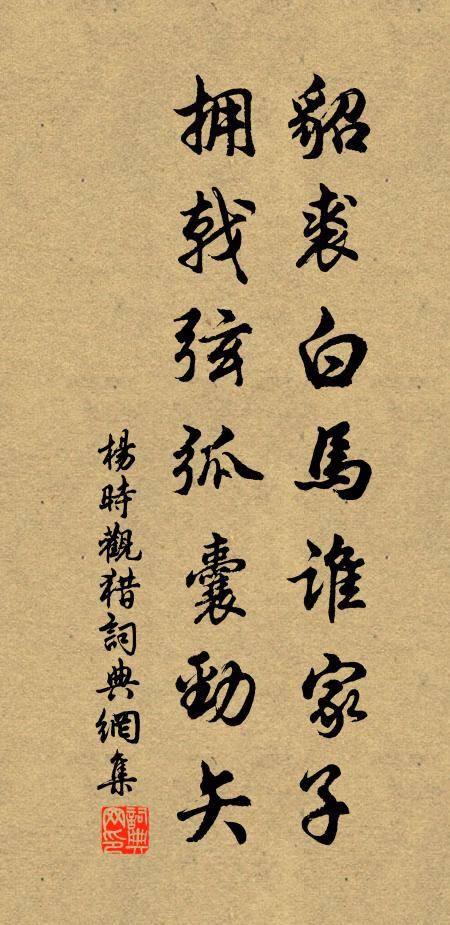 貂裘白馬谁家子
拥戟弦弧囊勁矢
楊時觀猎詞典網集
詞典网印